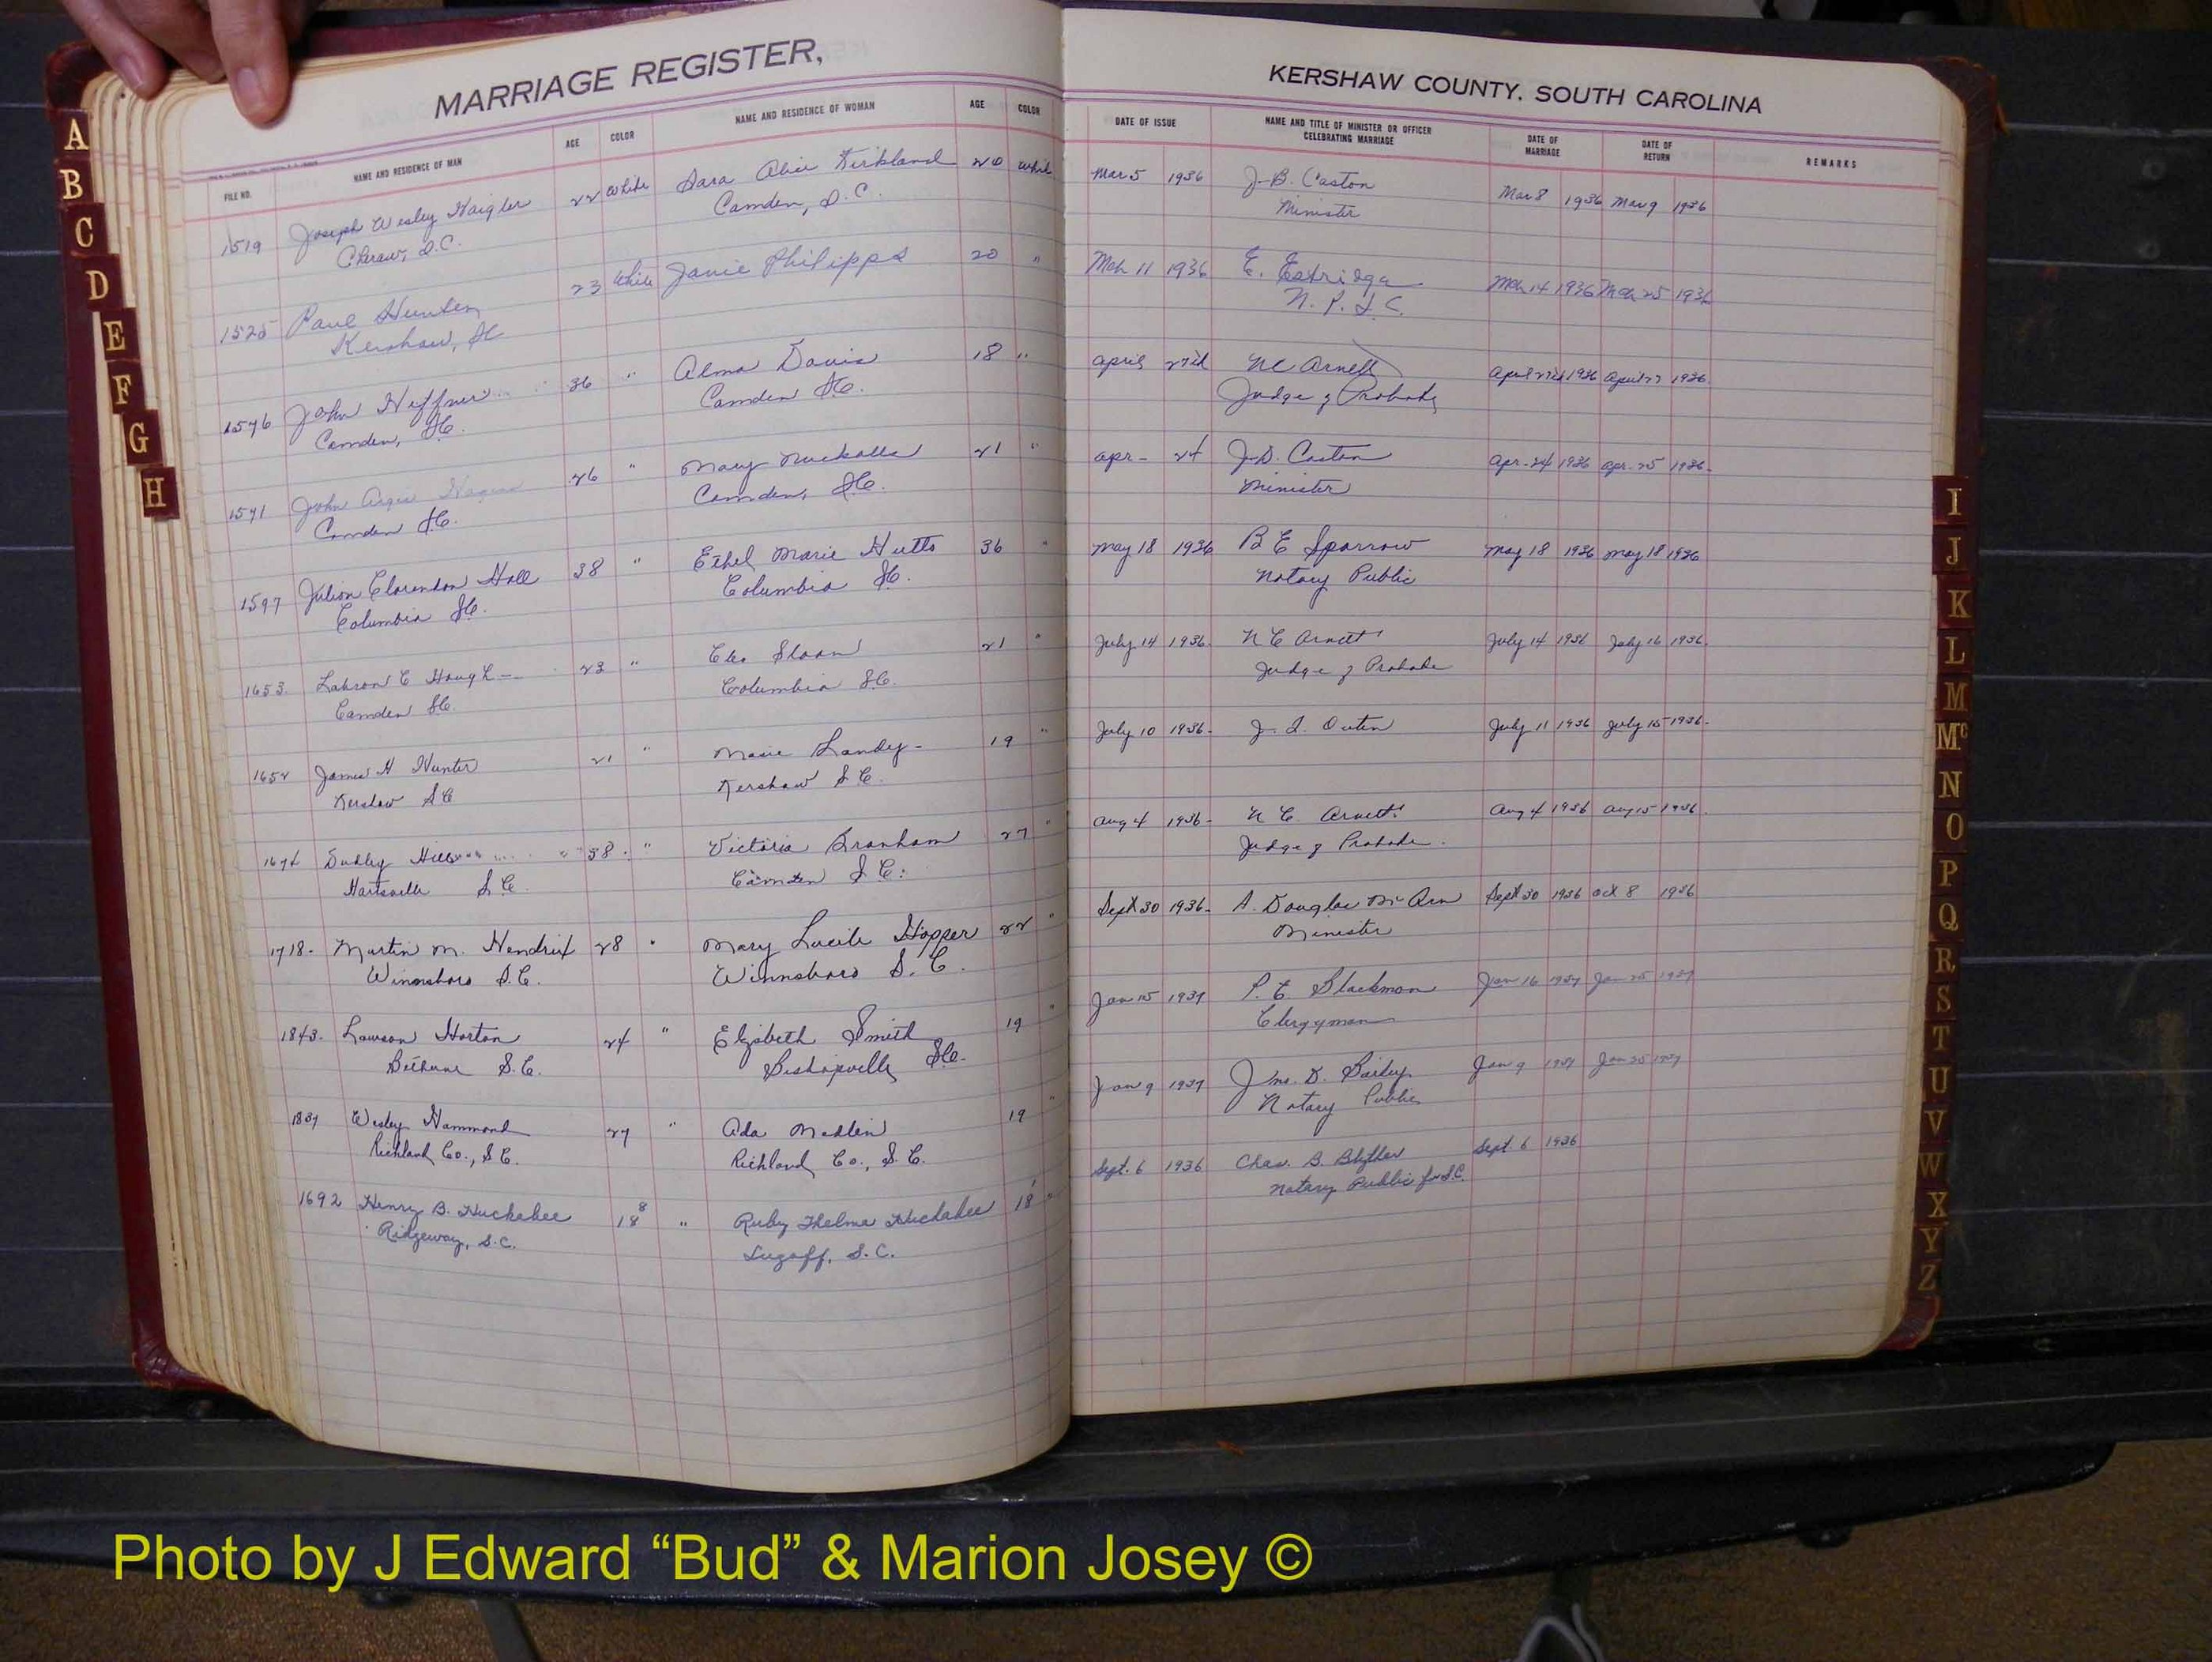 MARRIAGE REGISTER,
KERSHAW COUNTY. SOUTH CAROLINA
FILE NO. NAME AND RESIDENCE OF MAN AGE COLOR NAME AND RESIDENCE OF WOMAN AGE COLOR DATE OF ISSUE NAME AND TITLE OF MINISTER OR OFFICER CELEBRATING MARRIAGE DATE OF MARRIAGE DATE OF RETURN REMARKS
1519 Joseph Wesley Haigler 22 White Sara Alice Kirkland 20 White Mar 5 1936 J-B. Caston Mar 8 1936 Mar 9 1936
Cheraw, S.C. Camden, S.C. Minister
1525 Paul Hunter 23 White Janie Philipps 20 " Mch 11 1936 E. Estridge Mch 14 1936 Mch 25 1936
Kershaw, SC N. P. S. C.
1576 John Heffner 36 " Alma Davis 18 " April 27th NC Arnett April 27th 1936 April 27 1936
Camden, SC. Camden SC. Judge of Probate
1571 John 26 " Mary Nuckolls 21 " Apr- 24 J.D. Caston Apr-24 1936 Apr-25 1936-
Camden SC. Camden, SC. Minister
1597 Julion Clarendon Hall 38 " Ethel Marie Hutto 36 " May 18 1936 B E Sparrow May 18 1936 May 18 1936
Columbia SC. Columbia SC. Notary Public
1653. C Hough 23 " Cleo Sloan 21 " July 14 1936. N C Arnett July 14 1936 July 16 1936.
Camden SC. Columbia SC. Judge of Probate
1652 James H Hunter 21 " Marie Landy- 19 " July 10 1936- J. I. Outen July 11 1936 July 15 1936-
Kershaw S C Kershaw S C.
1674 Dudley 38. " Victoria Branham 27 " Aug 4 1936- N C. Arnett Aug 4 1936 Aug 15 1936.
Hartsville S C. Camden S C. Judge of Probate.
1718- Martin M. Hendrix 28 " Mary Lucile Hopper 22 " Sept 30 1936- A. Douglas Sept 30 1936 Oct 8 1936
Winnsboro S.C. Winnsboro S. C. Minister
1843. Lawson Horton 24 " Elizabeth Smith 19 " Jan 15 1937 P. E. Blackmon Jan 16 1937 Jan 25 1937
Bethune S.C. Bishopville SC. Clergyman
1837 Wesley Hammond 27 " Ada Medlin 19 " Jan 9 1937 Jno. D. Bailey Jan 9 1937 Jan 25 1937
Richland Co., S C. Richland Co., S. C. Notary Public
1692 Henry B. Huckabee 18 " Ruby Thelma Huckabee 18 " Sept. 6 1936 Chas. B. Blythe Sept. 6 1936
Ridgeway, S.C. Lugoff, S.C. Notary Public for S.C.
A
B
C
D
E
F
G
H
I
J
K
L
M
Mc
N
O
P
Q
R
S
T
U
V
W
X
Y
Z
Photo by J Edward “Bud” & Marion Josey ©